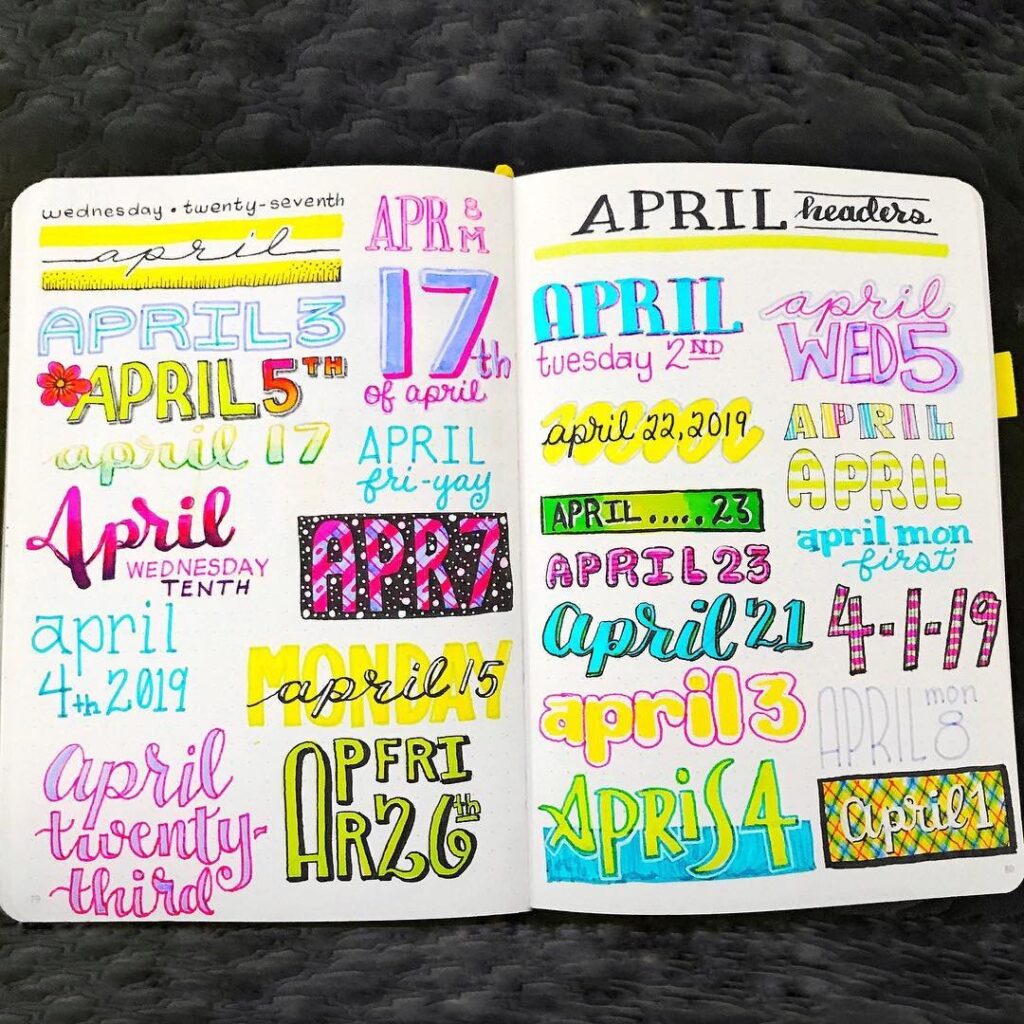 wednesday • twenty-seventh
april
APRIL 3
APRIL 5TH
april 17
April
WEDNESDAY
TENTH
april
4th 2019
april
twenty-
third
79
APR 8
M
17th
of april
APRIL
fri-yay
APR 7
MONDAY
april 15
AP FRI
AR 26th
APRIL headers
APRIL
tuesday 2ND
april 22, 2019
APRIL.....23
APRIL 23
april '21
april 3
april
WED 5
APRIL
APRIL
april mon
first
4-1-19
APRIL mon
8
April 1
80